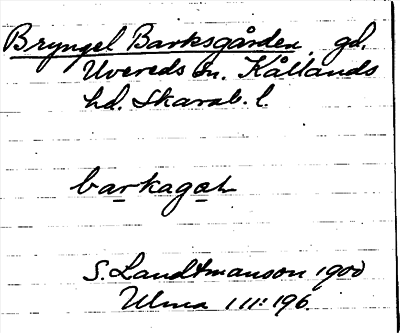 Bryngel Barksgården, gd.
Uvereds sn. Kållands
hd. Skarab. l.
barkagaḷ
S. Landtmanson 1900
Ulma 111:196.